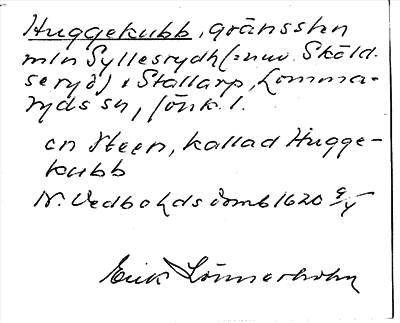 Huggekubb, gränssten
mln Syllesrydh (= nuv. Sköld-
seryd) o Stallarp, Lomma-
ryds sn, Jönk. l.
en Steen, kallad Hugge-
kubb
N. Vedbo hds domb 1620 9/5
Erik Lönnerholm